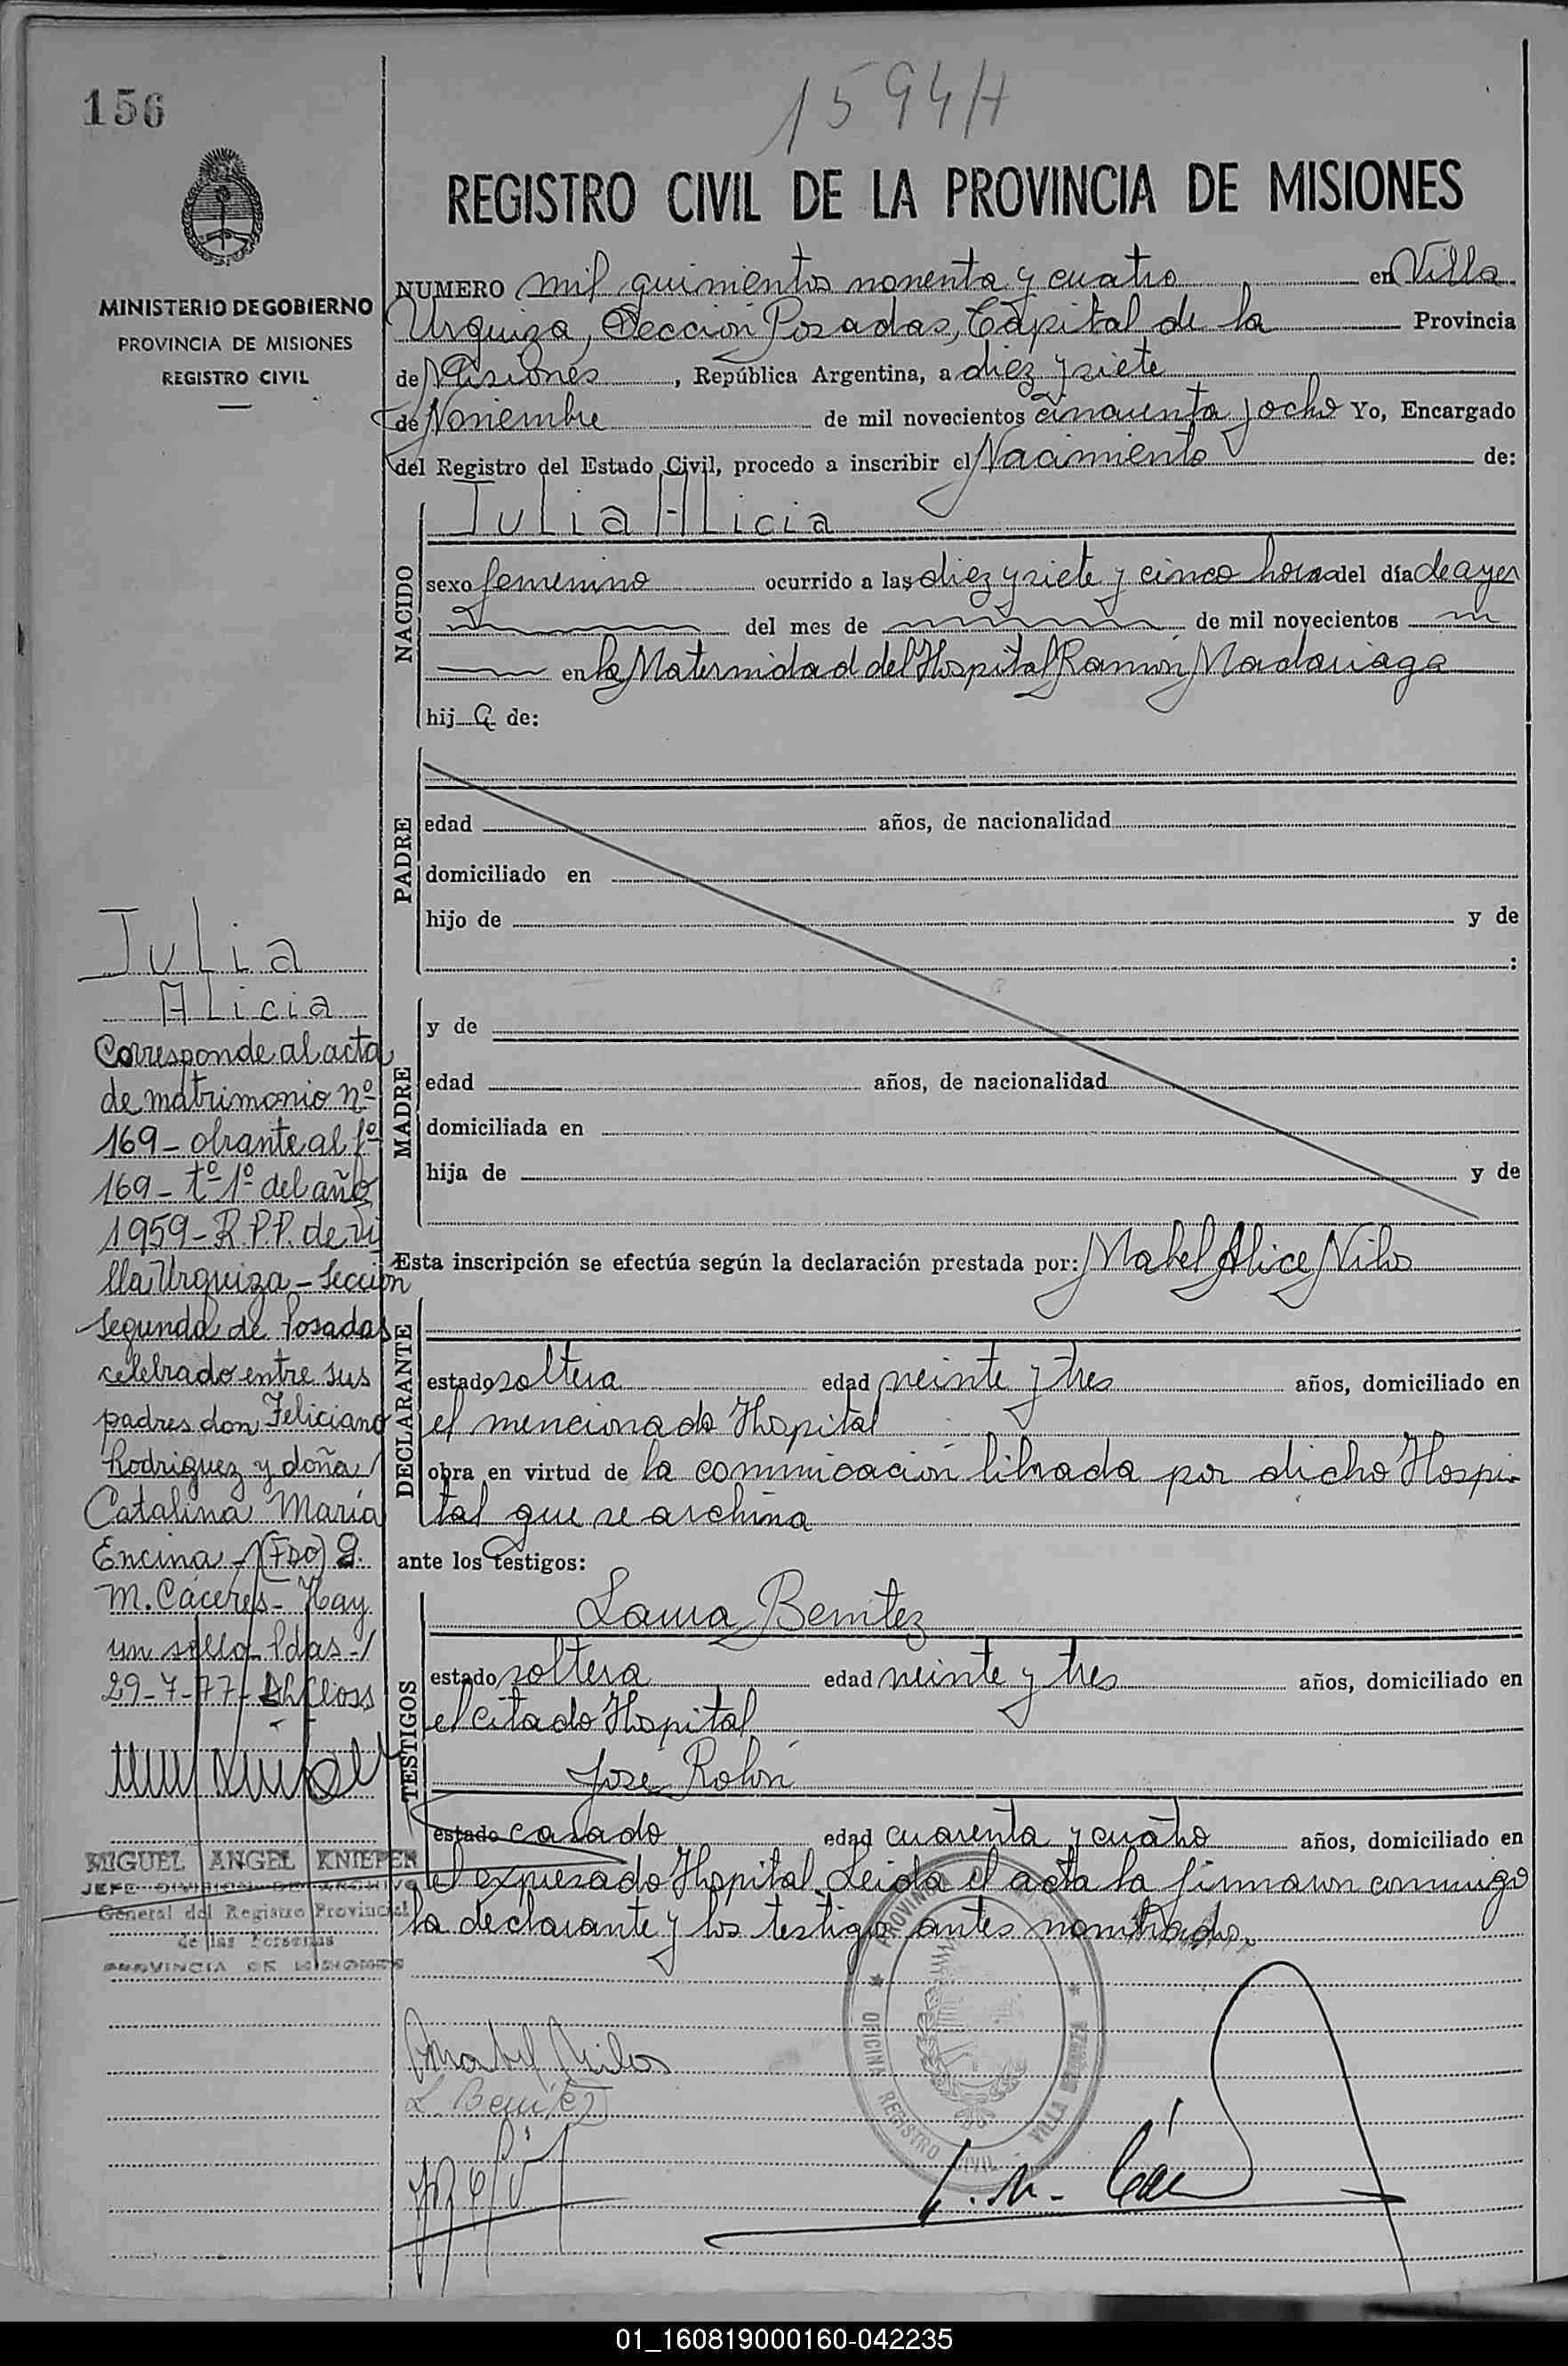 156
1594H
REGISTRO CIVIL DE LA PROVINCIA DE MISIONES
MINISTERIO DE GOBIERNO
PROVINCIA DE MISIONES
REGISTRO CIVIL
NUMERO mil quinientos noventa y cuatro en Villa
Urquiza, Sección Posadas, Capital de la Provincia
de Misiones, República Argentina, a diez y siete
de Noviembre de mil novecientos cincuenta y ocho Yo, Encargado
del Registro del Estado Civil, procedo a inscribir el Nacimiento de:
NACIDO
Julia Alicia
sexo femenino ocurrido a las diez y siete y cinco horas del día de ayer
del mes de de mil novecientos
en la Maternidad del Hospital Ramón Madariaga
hij a de:
PADRE
edad años, de nacionalidad
domiciliado en
hijo de y de
:
MADRE
y de
edad años, de nacionalidad
domiciliada en
hija de y de
Esta inscripción se efectúa según la declaración prestada por: Mabel Alice Nilos
DECLARANTE
estado soltera edad veinte y tres años, domiciliado en
el mencionado Hospital
obra en virtud de la comunicación librada por dicho Hospi-
tal que se archiva
ante los testigos:
TESTIGOS
Laura Benitez
estado soltera edad veinte y tres años, domiciliado en
el citado Hospital
José Rolón
estado casado edad cuarenta y cuatro años, domiciliado en
el expresado Hospital. Leida el acta la firmaron conmigo
la declarante y los testigos antes nombrados.
Julia
Alicia
Corresponde al acta
de matrimonio nº
169 - obrante al fº
169 - tº 1º del año
1959 - R.P.P. de Vi
lla Urquiza - Sección
Segunda de Posadas
celebrado entre sus
padres don Feliciano
Rodriguez y doña
Catalina María
Encina - (FDO) G.
M. Cáceres - Hay
un sello - Pdas -
29-7-77 -
MIGUEL ANGEL KNIEPER
JEFE DIVISION DE ARCHIVO
General del Registro Provincial
de las Personas
PROVINCIA DE MISIONES
Mabel Nilos
L. Benitez
PROVINCIA
OFICINA REGISTRO CIVIL - VILLA URQUIZA
01_160819000160-042235